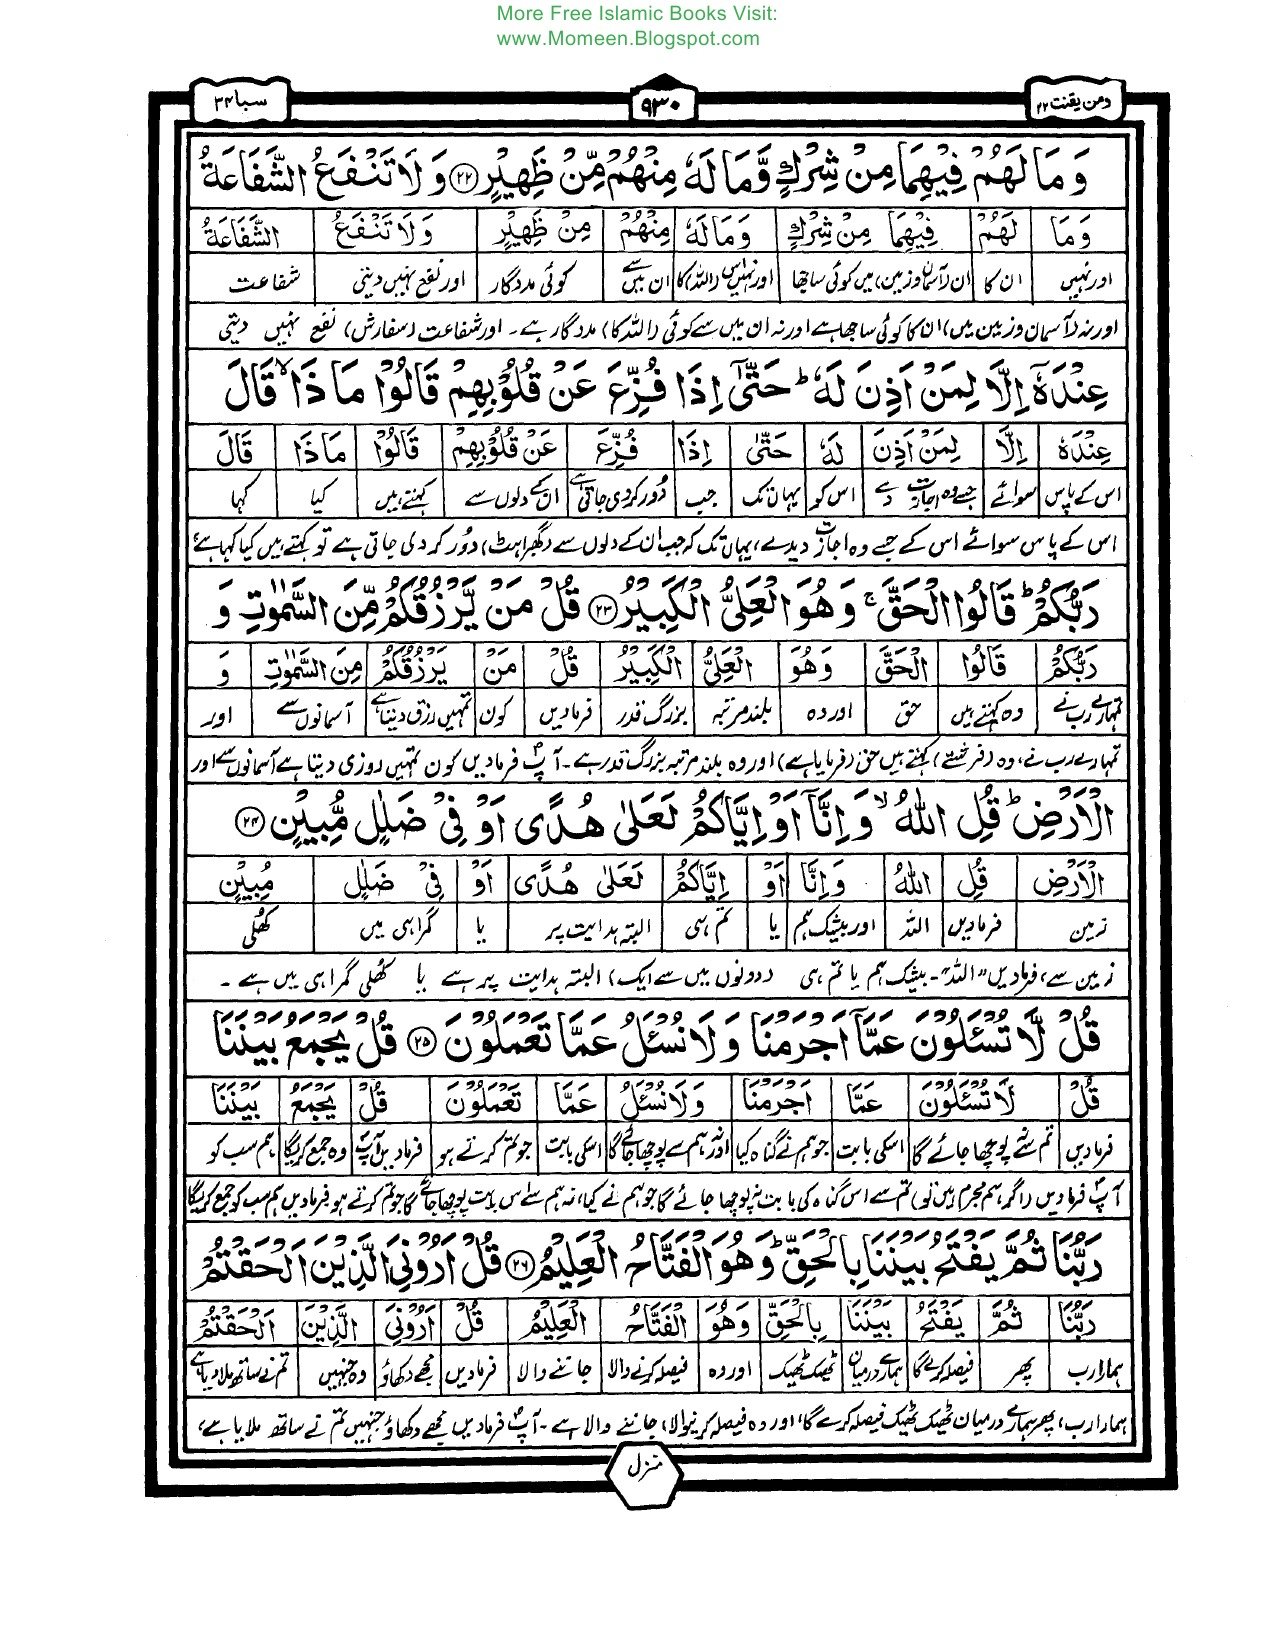 More Free Islamic Books Visit:
www.Momeen.Blogspot.com
ومن یقنت ۲۲
۹۳۰
سبا ۳۴
وَمَا لَهُمْ فِيْهِمَا مِنْ شِرْكٍ وَّمَا لَهٗ مِنْهُمْ مِّنْ ظَهِيْرٍ ۲۲ وَلَا تَنْفَعُ الشَّفَاعَةُ
وَمَا لَهُمْ فِيْهِمَا مِنْ شِرْكٍ وَمَا لَهٗ مِنْهُمْ مِنْ ظَهِيْرٍ وَلَا تَنْفَعُ الشَّفَاعَةُ
اور نہیں ان کا ان (آسمان و زمین) میں کوئی ساجھا اور نہیں اس (اللہ) کا ان میں سے کوئی مددگار اور نفع نہیں دیتی شفاعت
اور نہ (آسمان و زمین میں) ان کا کوئی ساجھا ہے اور نہ ان میں سے کوئی (اللہ کا) مددگار ہے۔ اور شفاعت (سفارش) نفع نہیں دیتی
عِنْدَهٗٓ اِلَّا لِمَنْ اَذِنَ لَهٗ ؕ حَتّٰٓى اِذَا فُزِّعَ عَنْ قُلُوْبِهِمْ قَالُوْا مَاذَا ۙ قَالَ
عِنْدَهٗ اِلَّا لِمَنْ اَذِنَ لَهٗ حَتّٰى اِذَا فُزِّعَ عَنْ قُلُوْبِهِمْ قَالُوْا مَاذَا قَالَ
اس کے پاس سوائے جسے وہ اجازت دے اس کو یہاں تک جب دُور کر دی جاتی ہے ان کے دلوں سے کہتے ہیں کیا کہا
اس کے پاس سوائے اس کے جسے وہ اجازت دیدے، یہاں تک کہ جب ان کے دلوں سے (گھبراہٹ) دُور کر دی جاتی ہے تو کہتے ہیں کیا کہا ہے
رَبُّكُمْ ؕ قَالُوا الْحَقَّ ۚ وَهُوَ الْعَلِيُّ الْكَبِيْرُ ۲۳ قُلْ مَنْ يَّرْزُقُكُمْ مِّنَ السَّمٰوٰتِ وَ
رَبُّكُمْ قَالُوا الْحَقَّ وَهُوَ الْعَلِيُّ الْكَبِيْرُ قُلْ مَنْ يَرْزُقُكُمْ مِنَ السَّمٰوٰتِ وَ
تمہارے رب نے وہ کہتے ہیں حق اور وہ بلند مرتبہ بزرگ قدر فرمادیں کون تمہیں رزق دیتا ہے آسمانوں سے اور
تمہارے رب نے، وہ (فرشتے) کہتے ہیں حق (فرمایا ہے) اور وہ بلند مرتبہ بزرگ قدر ہے۔ آپؐ فرمادیں کون تمہیں روزی دیتا ہے آسمانوں سے اور
الْاَرْضِ ؕ قُلِ اللّٰهُ ۙ وَاِنَّآ اَوْ اِيَّاكُمْ لَعَلٰى هُدًى اَوْ فِيْ ضَلٰلٍ مُّبِيْنٍ ۲۴
الْاَرْضِ قُلِ اللّٰهُ وَاِنَّا اَوْ اِيَّاكُمْ لَعَلٰى هُدًى اَوْ فِيْ ضَلٰلٍ مُبِيْنٍ
زمین فرمادیں اللہ اور بیشک ہم یا تم ہی البتہ ہدایت پر یا گمراہی میں کھُلی
زمین سے، فرمادیں "اللہ"۔ بیشک ہم یا تم ہی (دونوں میں سے ایک) البتہ ہدایت پر ہے یا کھُلی گمراہی میں ہے۔
قُلْ لَّا تُسْئَلُوْنَ عَمَّآ اَجْرَمْنَا وَلَا نُسْئَلُ عَمَّا تَعْمَلُوْنَ ۲۵ قُلْ يَجْمَعُ بَيْنَنَا
قُلْ لَا تُسْئَلُوْنَ عَمَّا اَجْرَمْنَا وَلَا نُسْئَلُ عَمَّا تَعْمَلُوْنَ قُلْ يَجْمَعُ بَيْنَنَا
فرمادیں تم سے نہ پوچھا جائے گا اسکی بابت جو ہم نے گناہ کیا اور نہ ہم سے پوچھا جائے گا اسکی بابت جو تم کرتے ہو فرمادیں آپؐ وہ جمع کریگا ہم سب کو
آپؐ فرمادیں (اگر ہم مجرم ہیں تو) تم سے اس گناہ کی بابت نہ پوچھا جائے گا جو ہم نے کیا، نہ ہم سے اس بابت پوچھا جائے گا جو تم کرتے ہو، فرمادیں ہم سب کو جمع کریگا
رَبُّنَا ثُمَّ يَفْتَحُ بَيْنَنَا بِالْحَقِّ ؕ وَهُوَ الْفَتَّاحُ الْعَلِيْمُ ۲۶ قُلْ اَرُوْنِيَ الَّذِيْنَ اَلْحَقْتُمْ
رَبُّنَا ثُمَّ يَفْتَحُ بَيْنَنَا بِالْحَقِّ وَهُوَ الْفَتَّاحُ الْعَلِيْمُ قُلْ اَرُوْنِيَ الَّذِيْنَ اَلْحَقْتُمْ
ہمارا رب پھر فیصلہ کریگا ہمارے درمیان ٹھیک ٹھیک اور وہ فیصلہ کرنے والا جاننے والا فرمادیں مجھے دکھاؤ وہ جنہیں تم نے ساتھ ملا دیا ہے
ہمارا رب، پھر ہمارے درمیان ٹھیک ٹھیک فیصلہ کرے گا، اور وہ فیصلہ کرنیوالا، جاننے والا ہے۔ آپؐ فرمادیں مجھے دکھاؤ جنہیں تم نے ساتھ ملایا ہے،
منزل